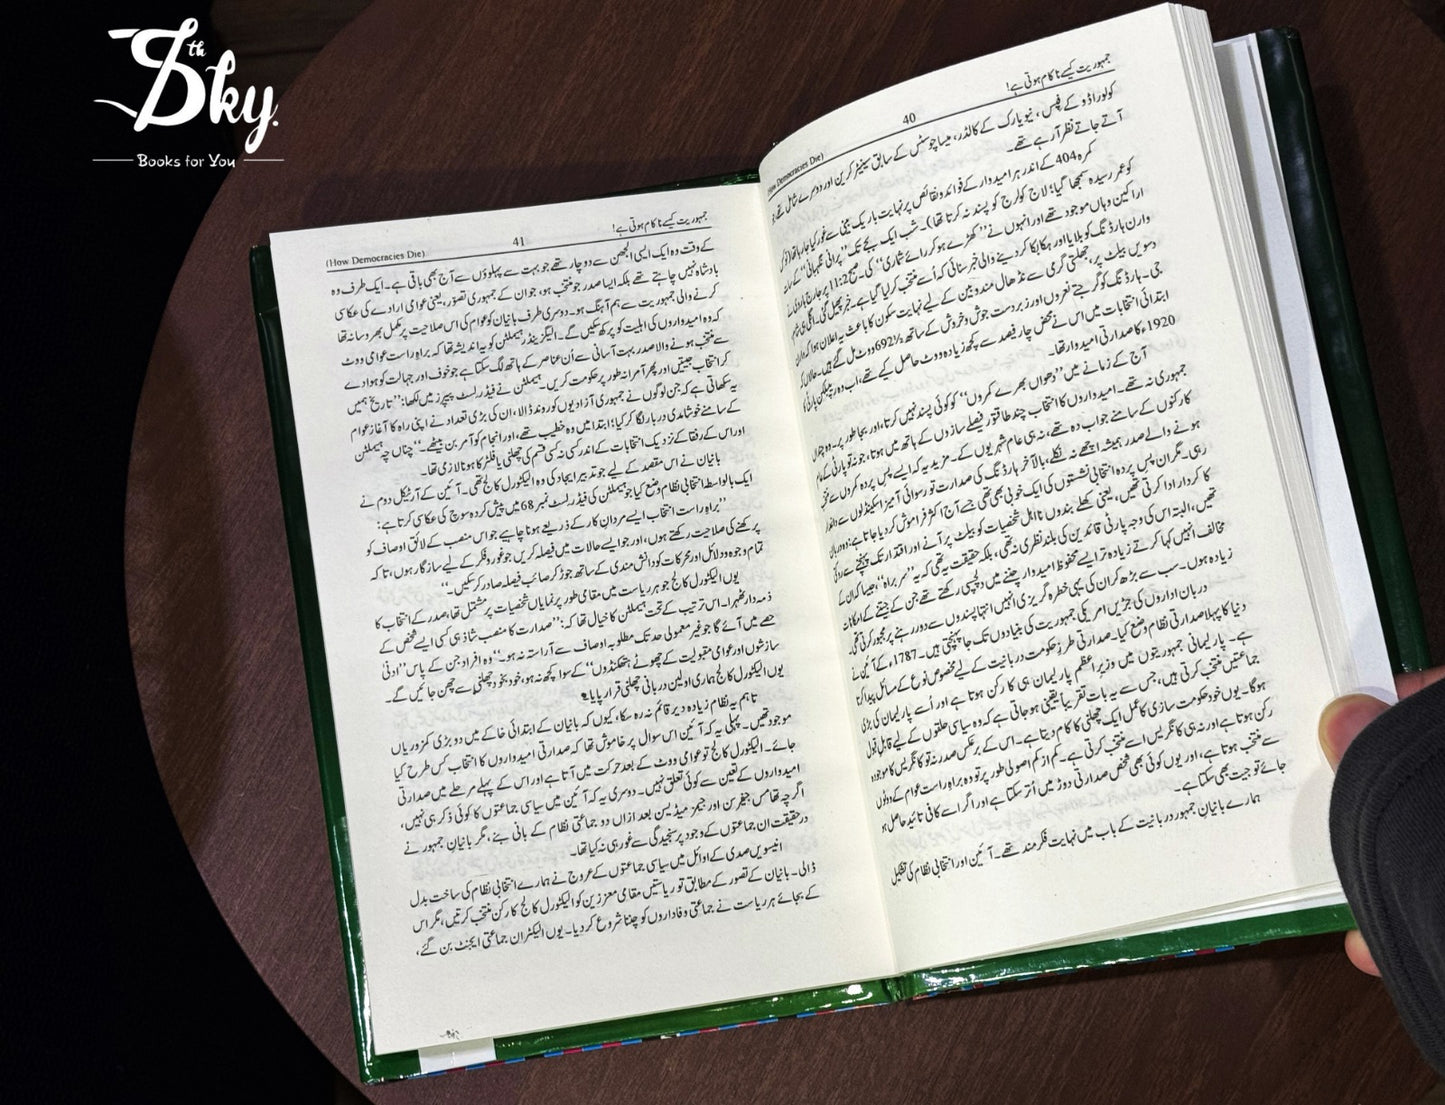 Sky
th
Books for You
جمہوریت کیسے ناکام ہوتی ہے!
40
(How Democracies Die)
کولوراڈو کے فپس، نیویارک کے کالڈر، میساچوسٹس کے سابق سینیٹر کرین اور دوسرے شامل تھے،
آتے جاتے نظر آ رہے تھے۔
کمرہ 404 کے اندر ہر امیدوار کے فوائد و نقائص پر نہایت باریک بینی سے غور کیا جا رہا تھا
کو عمر رسیدہ سمجھا گیا؛ لاج کولرج کو پسند نہ کرتا تھا)۔ شب ایک بجے تک ’’پرانی نگہبانی‘‘ کے
اراکین وہاں موجود تھے اور انہوں نے ’’کھڑے ہو کر رائے شماری‘‘ کی۔ صبح 2:11 پر جارج ہاروی نے
وارن ہارڈنگ کو بلایا اور ہکا بکا کر دینے والی خبر سنائی کہ اُسے منتخب کر لیا گیا ہے۔ خبر پھیل گئی۔ اگلی شام
دسویں بیلٹ پر، جھلستی گرمی سے نڈھال مندوبین کے لیے نہایت سکون کا باعث یہ اعلان ہوا کہ وارن
جی۔ ہارڈنگ کو گرجتے نعروں اور زبردست جوش و خروش کے ساتھ 692½ ووٹ مل گئے ہیں۔ حالاں کہ
ابتدائی انتخابات میں اس نے محض چار فیصد سے کچھ زیادہ ووٹ حاصل کیے تھے، اب وہ ریپبلکن پارٹی کا
1920ء کا صدارتی امیدوار تھا۔
آج کے زمانے میں ’’دھواں بھرے کمروں‘‘ کو کوئی پسند نہیں کرتا، اور بجا طور پر۔ وہ چنداں
جمہوری نہ تھے۔ امیدواروں کا انتخاب چند طاقتور فیصلے سازوں کے ہاتھ میں ہوتا، جو نہ تو پارٹی کے عام
کارکنوں کے سامنے جواب دہ تھے، نہ ہی عام شہریوں کے۔ مزید یہ کہ ایسے پس پردہ کمروں سے منتخب
ہونے والے صدر ہمیشہ اچھے نہ نکلے، بالآخر ہارڈنگ کی صدارت تو رسوائی آمیز اسکینڈلوں سے داغدار
رہی۔ مگر ان پس پردہ انتخابی نشستوں کی ایک خوبی بھی تھی جسے آج اکثر فراموش کر دیا جاتا ہے: وہ دربان
کا کردار ادا کرتی تھیں، یعنی کھلے بندوں نااہل شخصیات کو بیلٹ پر آنے اور اقتدار تک پہنچنے سے روکتی
تھیں، البتہ اس کی وجہ پارٹی قائدین کی بلند نظری نہ تھی، بلکہ حقیقت یہ تھی کہ یہ ’’سربراہ‘‘، جیسا کہ ان کے
مخالف انہیں کہا کرتے زیادہ تر ایسے محفوظ امیدوار چننے میں دلچسپی رکھتے تھے جن کے جیتنے کے امکانات
زیادہ ہوں۔ سب سے بڑھ کر ان کی یہی خطرہ گریزی انہیں انتہا پسندوں سے دور رہنے پر مجبور کرتی تھی۔
دربان اداروں کی جڑیں امریکی جمہوریت کی بنیادوں تک جا پہنچتی ہیں۔ 1787ء کے آئین نے
دنیا کا پہلا صدارتی نظام وضع کیا۔ صدارتی طرزِ حکومت دربانیت کے لیے مخصوص نوع کے مسائل پیدا کرتا
ہے۔ پارلیمانی جمہوریتوں میں وزیرِ اعظم پارلیمان ہی کا رکن ہوتا ہے اور اُسے پارلیمان کی بڑی
جماعتیں منتخب کرتی ہیں، جس سے یہ بات تقریباً یقینی ہو جاتی ہے کہ وہ سیاسی حلقوں کے لیے قابلِ قبول
ہوگا۔ یوں خود حکومت سازی کا عمل ایک چھلنی کا کام دیتا ہے۔ اس کے برعکس صدر نہ تو کانگریس کا موجودہ
رکن ہوتا ہے اور نہ ہی کانگریس اسے منتخب کرتی ہے۔ کم از کم اصولی طور پر تو وہ براہِ راست عوام کے ووٹوں
سے منتخب ہوتا ہے، اور یوں کوئی بھی شخص صدارتی دوڑ میں اُتر سکتا ہے اور اگر اسے کافی تائید حاصل ہو
جائے تو جیت بھی سکتا ہے۔
ہمارے بانیانِ جمہور دربانیت کے باب میں نہایت فکر مند تھے۔ آئین اور انتخابی نظام کی تشکیل
جمہوریت کیسے ناکام ہوتی ہے!
41
(How Democracies Die)
کے وقت وہ ایک ایسی الجھن سے دوچار تھے جو بہت سے پہلوؤں سے آج بھی باقی ہے۔ ایک طرف وہ
بادشاہ نہیں چاہتے تھے بلکہ ایسا صدر جو منتخب ہو، جو ان کے جمہوری تصور، یعنی عوامی ارادے کی عکاسی
کرنے والی جمہوریت سے ہم آہنگ ہو۔ دوسری طرف بانیان کو عوام کی اس صلاحیت پر مکمل بھروسا نہ تھا
کہ وہ امیدواروں کی اہلیت کو پرکھ سکیں گے۔ الیگزینڈر ہیملٹن کو یہ اندیشہ تھا کہ براہِ راست عوامی ووٹ
سے منتخب ہونے والا صدر بہت آسانی سے اُن عناصر کے ہاتھ لگ سکتا ہے جو خوف اور جہالت کو ہوا دے
کر انتخاب جیتیں اور پھر آمرانہ طور پر حکومت کریں۔ ہیملٹن نے فیڈرلسٹ پیپرز میں لکھا: ’’تاریخ ہمیں
یہ سکھاتی ہے کہ جن لوگوں نے جمہوری آزادیوں کو روند ڈالا، ان کی بڑی تعداد نے اپنی راہ کا آغاز عوام
کے سامنے خوشامدی دربار لگا کر کیا؛ ابتدا میں وہ خطیب تھے، اور انجامِ کو آمر بن بیٹھے۔‘‘ چناں چہ ہیملٹن
اور اس کے رفقا کے نزدیک انتخابات کے اندر کسی نہ کسی قسم کی چھلنی یا فلٹر کا ہونا لازمی تھا۔
بانیان نے اس مقصد کے لیے جو تدبیر ایجاد کی وہ الیکٹورل کالج تھی۔ آئین کے آرٹیکل دوم نے
ایک بالواسطہ انتخابی نظام وضع کیا جو ہیملٹن کی فیڈرلسٹ نمبر 68 میں پیش کردہ سوچ کی عکاسی کرتا ہے:
’’براہِ راست انتخاب ایسے مردانِ کار کے ذریعے ہونا چاہیے جو اس منصب کے لائق اوصاف کو
پرکھنے کی صلاحیت رکھتے ہوں، اور جو ایسے حالات میں فیصلہ کریں جو غور و فکر کے لیے سازگار ہوں، تا کہ
تمام وجوہ و دلائل اور محرکات کو دانش مندی کے ساتھ جوڑ کر صائب فیصلہ صادر کر سکیں۔‘‘
یوں الیکٹورل کالج جو ہر ریاست میں مقامی طور پر نمایاں شخصیات پر مشتمل تھا، صدر کے انتخاب کا
ذمہ دار ٹھہرا۔ اس ترتیب کے تحت ہیملٹن کا خیال تھا کہ: ’’صدارت کا منصب شاذ ہی کسی ایسے شخص کے
حصے میں آئے گا جو غیر معمولی حد تک مطلوبہ اوصاف سے آراستہ نہ ہو۔‘‘ وہ افراد جن کے پاس ’’ادنیٰ
سازشوں اور عوامی مقبولیت کے چھوٹے ہتھکنڈوں‘‘ کے سوا کچھ نہ ہو، خود بخود چھلنی سے چھن جائیں گے۔
یوں الیکٹورل کالج ہماری اولین دربانی چھلنی قرار پایا۔
تاہم یہ نظام زیادہ دیر قائم نہ رہ سکا، کیوں کہ بانیان کے ابتدائی خاکے میں دو بڑی کمزوریاں
موجود تھیں۔ پہلی یہ کہ آئین اس سوال پر خاموش تھا کہ صدارتی امیدواروں کا انتخاب کس طرح کیا
جائے۔ الیکٹورل کالج تو عوامی ووٹ کے بعد حرکت میں آتا ہے اور اس کے پہلے مرحلے میں صدارتی
امیدواروں کے تعین سے کوئی تعلق نہیں۔ دوسری یہ کہ آئین میں سیاسی جماعتوں کا کوئی ذکر ہی نہیں،
اگرچہ تھامس جیفرسن اور جیمز میڈیسن بعد ازاں دو جماعتی نظام کے بانی بنے، مگر بانیانِ جمہور نے
در حقیقت ان جماعتوں کے وجود پر سنجیدگی سے غور ہی نہ کیا تھا۔
انیسویں صدی کے اوائل میں سیاسی جماعتوں کے عروج نے ہمارے انتخابی نظام کی ساخت بدل
ڈالی۔ بانیان کے تصور کے مطابق تو ریاستیں مقامی معززین کو الیکٹورل کالج کا رکن منتخب کرتیں، مگر اس
کے بجائے ہر ریاست نے جماعتی وفاداروں کو چننا شروع کر دیا۔ یوں الیکٹران جماعتی ایجنٹ بن گئے،